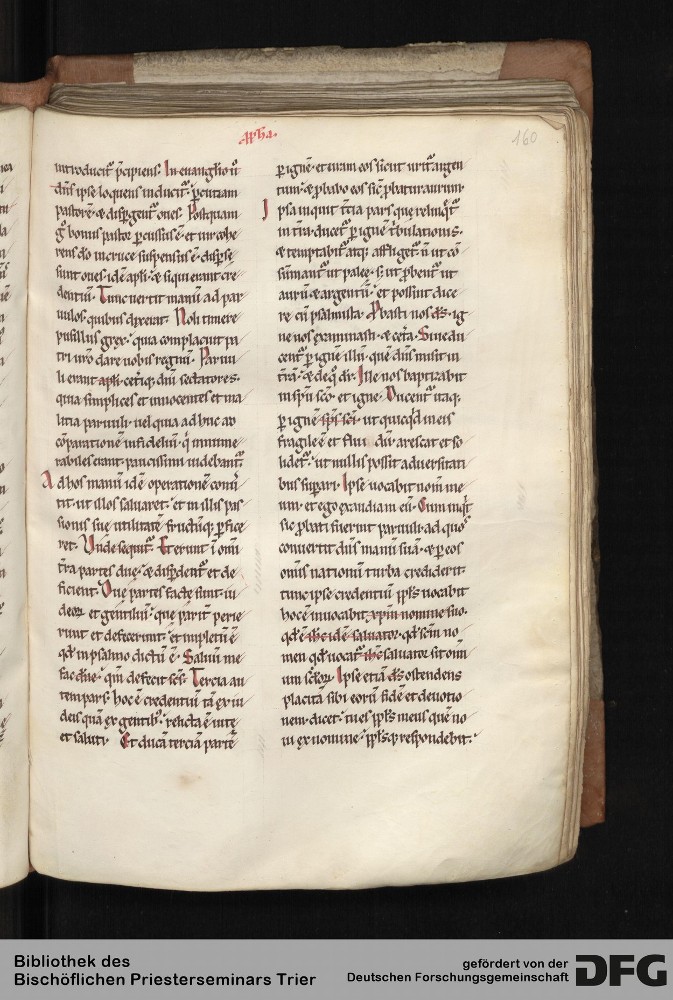 160
introducit᷑ p̄cipiens. In euangℓio ū
dn̄s ipse loquens inducit᷑. ꝑcutiam
pastorē. & disꝑgent᷑ oues. Postquam
gͦ bonus pastor ꝑcussus ē. et uir cohe
rens dō in cruce suspensus ē. disꝑse
sunt oues. idē apl̄i. & siqui erant cre
dentiū. Tunc uertit manū ad par
uulos. quibus dixerat. Noli timere
pusillus grex. quia complacuit pa
tri ur̄o dare uobis regnū. Paruu
li erant apl̄i. cet̄iqꝫ dn̄i sectatores.
quia simplices et innocentes et ma
litia paruuli. uel quia adhuc ad
cōparationē infideliū. qͥ innume
rabiles erant. paucissimi uidebant᷑.
Ad hos manū idē operationē conū
tit. ut illos saluaret. et in illis pas
sionis sue utilitatē fructūqꝫ ꝑfice
ret. Unde sequit᷑. Et erunt ī om̄i
t̄ra partes due. & disꝑdent᷑ et de
ficient. Due partes facte sunt. iu
deoꝝ et gentiliū. que parit̄ perie
runt et defecerunt. et impletū ē
qd̄ in psalmo dictū ē. Saluū me
fac dn̄e. qm̄ defecit scs̄. Tercia au
tem pars. hoc ē credentiū tā ex iu
deis quā ex gentibꝫ. relicta ē in te
et saluti. Et ducā terciam partē
ꝑ ignē. et uram eos sicut urit᷑ argen
tum. & ꝓbabo eos sic ꝓbatur aurum.
Ipsa inquit t̄cia pars que relinqͥt᷑
in t̄ra. ducet᷑ ꝑ ignē t̄bulationis.
& temptabit᷑ atqꝫ affliget᷑. ñ ut cō
sūmant᷑ ut palee. sꝫ ut ꝓbent᷑ ut
aurū & argentū. et possint dice
re cū psalmista. Ꝓbasti nos ds̄. ig
ne nos examinasti. & cet̄a. Siue du
cent᷑ ꝑ ignē illū. quē dn̄s misit in
t̄rā. & de qͦ dr̄. Ille uos baptizabit
in sp̄u scō. et igne. Ducent᷑ itaqꝫ
ꝑ ignē sp̄s sc̄i. ut quicqͥd in eis
fragile ē et flui dū. arescat et so
lidet᷑. ut nullis possit aduersitati
bus suꝑari. Ipse uocabit nom̄ me
um. et ego exaudiam eū. Cum inqͥt
sic ꝓbati fuerint paruuli. ad quoˢ
conuertit dn̄s manū suā. & ꝑ eos
om̄is nationū turba crediderit.
tunc ipse credentiū ppl̄s uocabit
hoc ē inuocabit xp̄m nomine suo.
qd̄ ē ih̄c idē saluator. qd̄ scm̄ no
men qd̄ uocat᷑ ih̄c saluator sit om̄i
um scl̄oꝝ. Ipse etiā ds̄ ostendens
placitā sibi eorū fidē et deuotio
nem. dicet. tu es ppl̄s meus. quē no
ui ex nomine. ppl̄s qꝫ respondebit.
Bibliothek des
Bischöflichen Priesterseminars Trier
gefördert von der
Deutschen Forschungsgemeinschaft
DFG